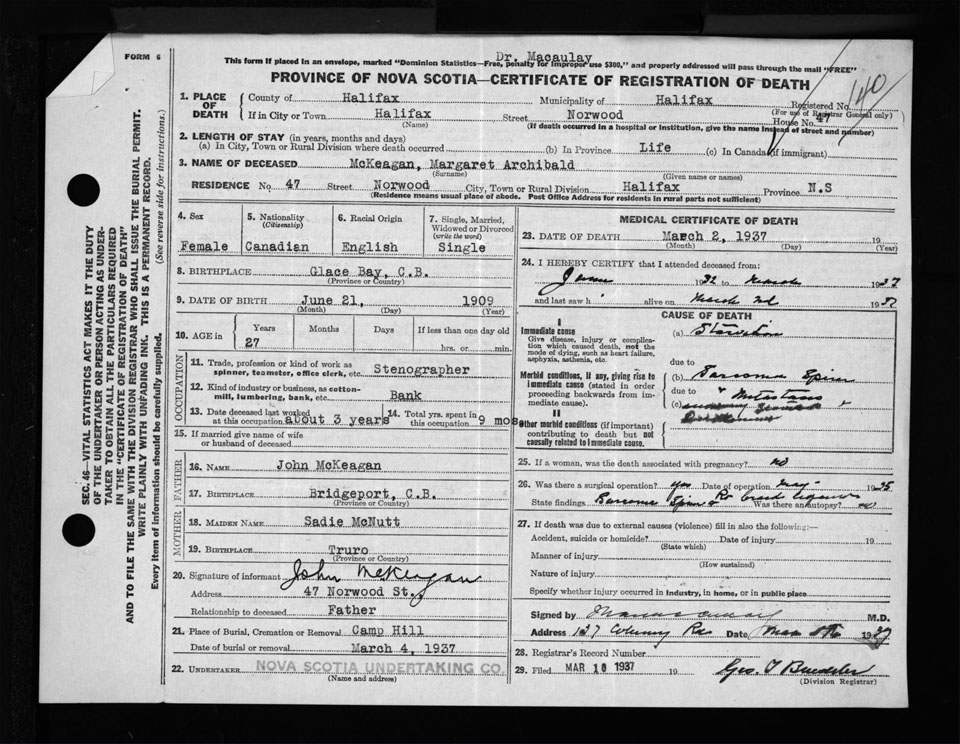 FORM 6
Dr. Macaulay
This form if placed in an envelope, marked "Dominion Statistics—Free, penalty for improper use $300," and properly addressed will pass through the mail "FREE"
PROVINCE OF NOVA SCOTIA—CERTIFICATE OF REGISTRATION OF DEATH
140
1. PLACE OF DEATH { County of Halifax Municipality of Halifax Registered No.
(For use of Registrar General only)
If in City or Town Halifax Street Norwood House No. 47
(Name) (If death occurred in a hospital or institution, give the name instead of street and number)
2. LENGTH OF STAY (in years, months and days)
(a) In City, Town or Rural Division where death occurred (b) In Province Life (c) In Canada (if immigrant)
3. NAME OF DECEASED McKeagan, Margaret Archibald
(Surname) (Given name or names)
RESIDENCE No. 47 Street Norwood City, Town or Rural Division Halifax Province N.S
(Residence means usual place of abode. Post Office Address for residents in rural parts not sufficient)
4. Sex 5. Nationality (Citizenship) 6. Racial Origin 7. Single, Married, Widowed or Divorced (write the word)
Female Canadian English Single
8. BIRTHPLACE Glace Bay, C.B.
(Province or Country)
9. DATE OF BIRTH June 21, 1909
(Month) (Day) (Year)
10. AGE in { Years Months Days If less than one day old
27 hrs. or min.
OCCUPATION
11. Trade, profession or kind of work as spinner, teamster, office clerk, etc. Stenographer
12. Kind of industry or business, as cotton-mill, lumbering, bank, etc. Bank
13. Date deceased last worked at this occupation about 3 years 14. Total yrs. spent in this occupation 9 mos
15. If married give name of wife or husband of deceased
FATHER
16. NAME John McKeagan
17. BIRTHPLACE Bridgeport, C.B.
(Province or Country)
MOTHER
18. MAIDEN NAME Sadie McNutt
19. BIRTHPLACE Truro
(Province or Country)
20. Signature of informant John McKeagan
Address 47 Norwood St.
Relationship to deceased Father
21. Place of Burial, Cremation or Removal Camp Hill
Date of burial or removal March 4, 1937
22. UNDERTAKER NOVA SCOTIA UNDERTAKING CO.
(Name and address)
MEDICAL CERTIFICATE OF DEATH
23. DATE OF DEATH March 2, 1937 19
(Month) (Day) (Year)
24. I HEREBY CERTIFY that I attended deceased from:
19 to March 1937
and last saw h alive on March 2nd 1937
CAUSE OF DEATH
I
Immediate cause (a)
Give disease, injury or complication which caused death, not the mode of dying, such as heart failure, asphyxia, asthenia, etc.
due to
Morbid conditions, if any, giving rise to immediate cause (stated in order proceeding backwards from immediate cause).
(b) Sarcoma Spine
due to " Metastases
(c)
II
Other morbid conditions (if important) contributing to death but not causally related to immediate cause.
25. If a woman, was the death associated with pregnancy? no
26. Was there a surgical operation? yes Date of operation 1935
State findings Sarcoma Spine Was there an autopsy? no
27. If death was due to external causes (violence) fill in also the following:—
Accident, suicide or homicide? Date of injury 19
(State which)
Manner of injury
(How sustained)
Nature of injury
Specify whether injury occurred in industry, in home, or in public place
Signed by M.D.
Address 127 Date 1937
28. Registrar's Record Number
29. Filed MAR 10 1937 19 Geo.
(Division Registrar)
SEC. 46—VITAL STATISTICS ACT MAKES IT THE DUTY
OF THE UNDERTAKER OR PERSON ACTING AS UNDER-
TAKER TO OBTAIN ALL THE PARTICULARS REQUIRED
IN THE "CERTIFICATE OF REGISTRATION OF DEATH"
AND TO FILE THE SAME WITH THE DIVISION REGISTRAR WHO SHALL ISSUE THE BURIAL PERMIT.
WRITE PLAINLY WITH UNFADING INK. THIS IS A PERMANENT RECORD.
Every item of information should be carefully supplied. (See reverse side for instructions.)